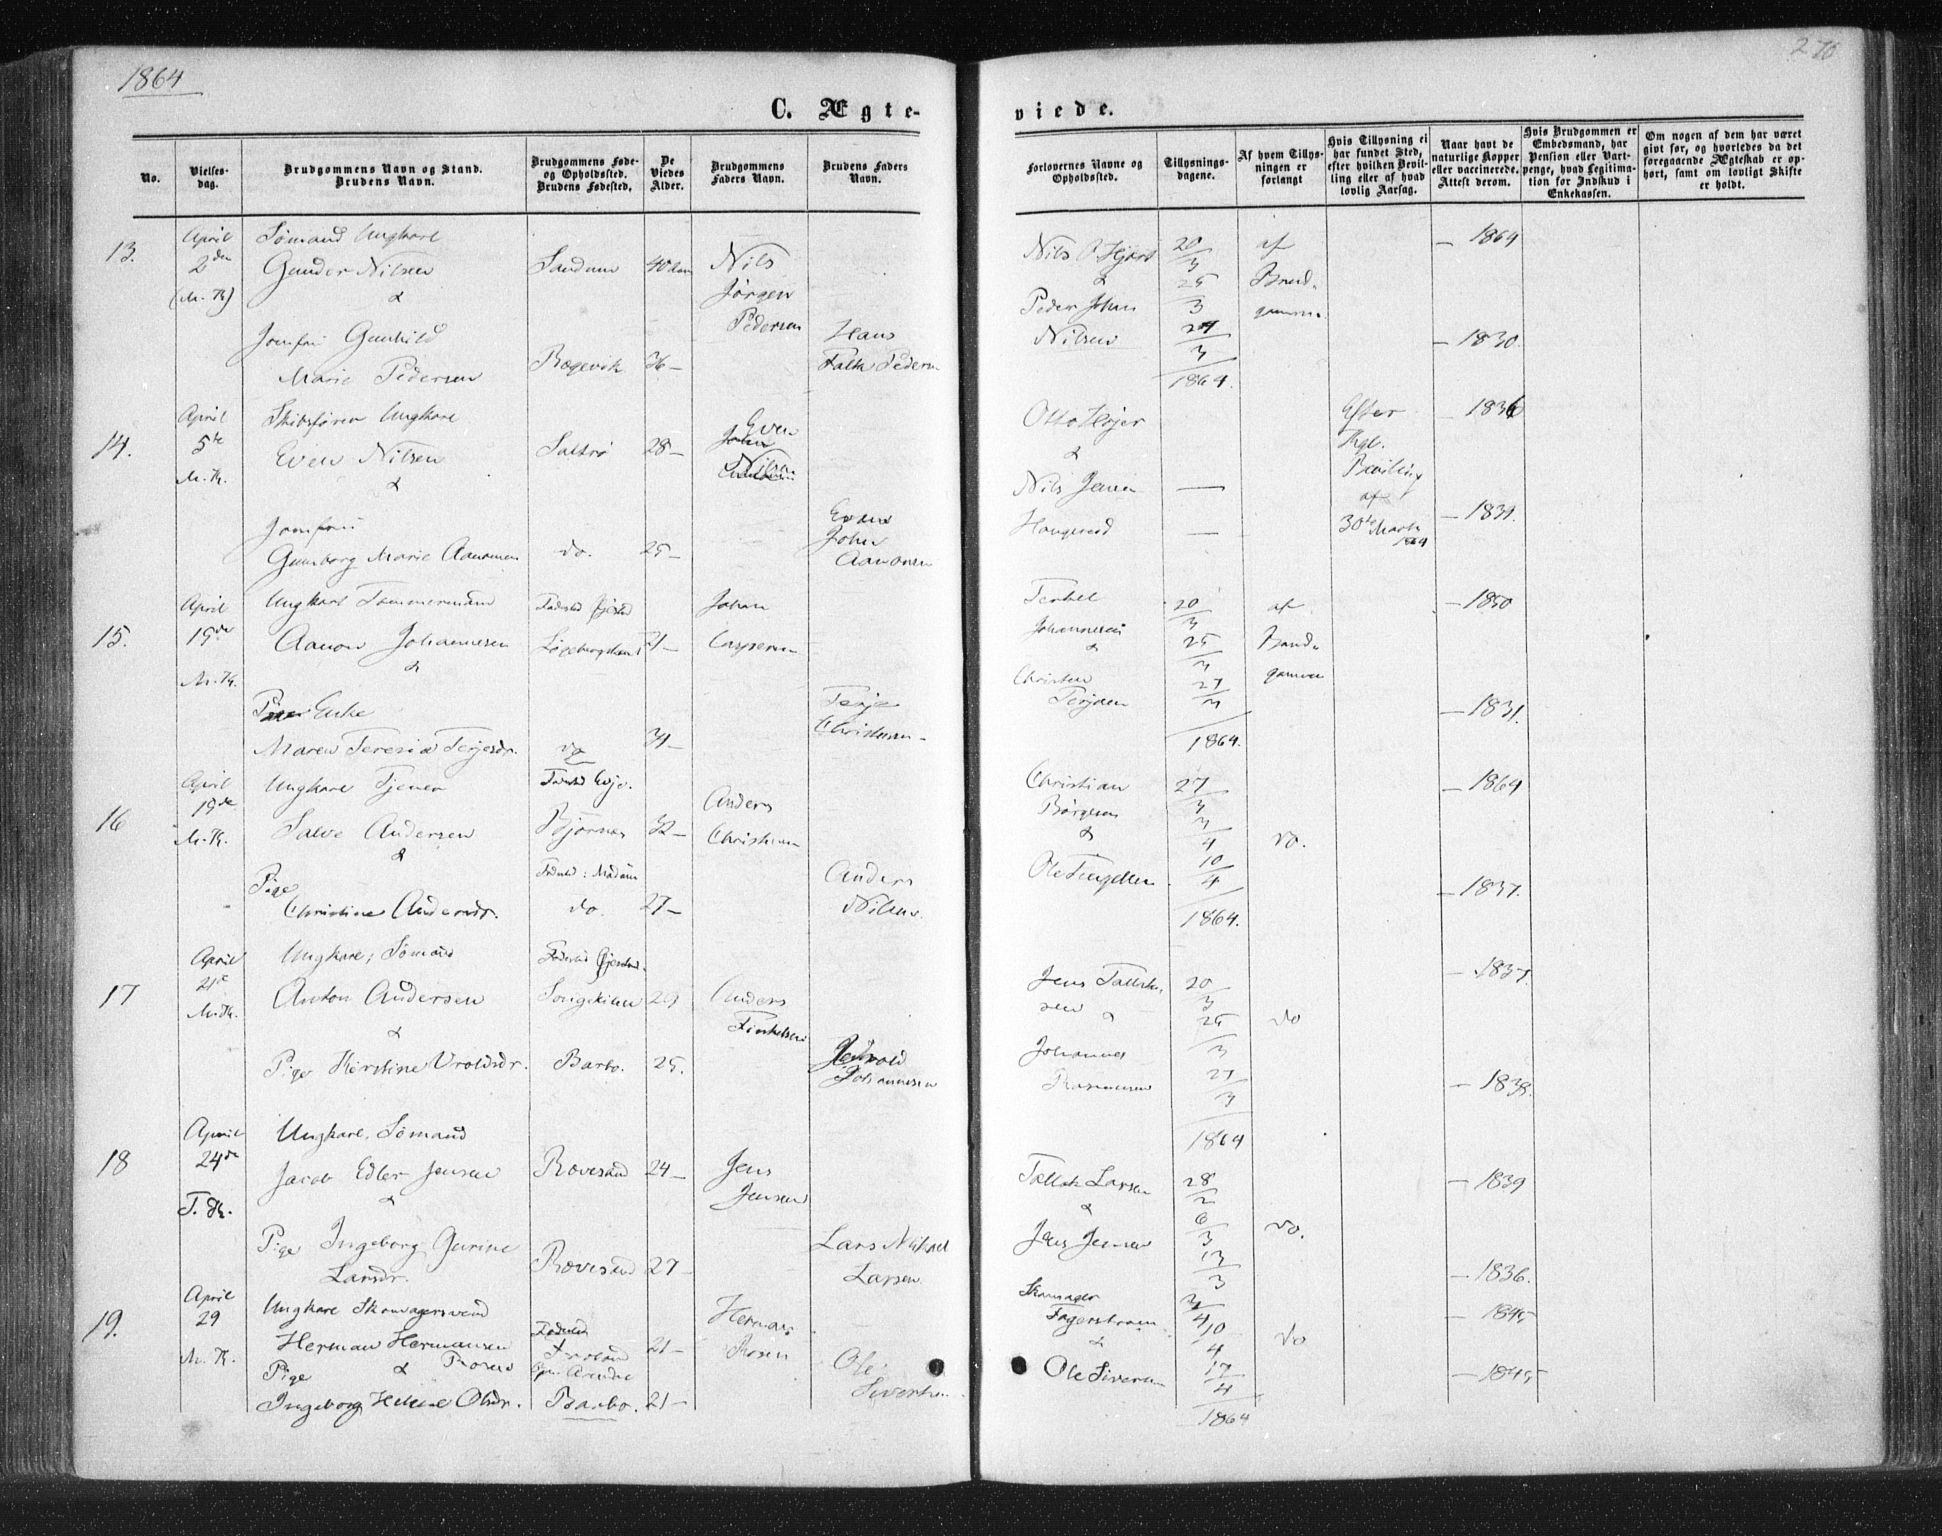 1864
276
C. Ægte-
viede.
No.
Vielses-
dag.
Brudgommens Navn og Stand.
Brudens Navn.
Brudgommens Føde-
og Opholdssted.
Brudens Fødested.
De
Viedes
Alder.
Brudgommens
Faders Navn.
Brudens Faders
Navn.
Forlovernes Navne og
Opholdssted.
Tillysnings-
dagene.
Af hvem Tillys-
ningen er
forlangt
Hvis Tillysning ei
har fundet Sted,
efter hvilken Bevil-
ling eller af hvad
lovlig Aarsag.
Naar havt de
naturlige Kopper
eller vaccinerede.
Attest derom.
Hvis Brudgommen er
Embedsmand, har
Pension eller Vart-
penge, hvad Legitima-
tion for Indskud i
Enkekassen.
Om nogen af dem har været
givt før, og hvorledes da det
foregaaende Ægteskab er op-
hørt, samt om lovligt Skifte
er holdt.
13.
April
2den
(M. K)
Sømand Ungkarl
Gunder Nilsen
&
Jomfru Gunhild
Marie Pedersen
Sandum 40
Nils
Jørgen
Pedersen
Hans
Falk Pedersen
Bogevik 36 –
Nils O Hjort
&
Peder Johan
Nilsen
20/3
25/3
27/3
1864.
af
Brud-
gommen
– 1864
– 1830.
14.
April
5te
M. K.
Skibsfører Ungkarl
Even Nilsen
&
Jomfru
Gunborg Marie Aanonsen
Saltrø 28 –
do. 25 –
Even
Nilsen
John
Aanonsen
Otto Højer
&
Nils Jensen
Haugerud
Efter
Kgl.
Bevilling
af
30te Marts
1864
– 1836
– 1831.
15.
April
19de
M. K.
Ungkarl Tømmermand
Aanon Johannesen
&
Enke
Maren Teresia Terjesdr.
Fødested
21 –
do 31 –
Johan
Caspersen
Terje
Christensen –
Terkel
Johannesen
&
Christen
Terjesen
20/3
25/3
27/3
1864.
af
Brud-
gommen
– 1850
– 1831.
16
April
19de
M. K.
Ungkarl Tjener
Salve Andersen
&
Pige
Christine Andersdr.
Fødested Evje.
Bjørnes 32 –
Fødested:
do. 27 –
Anders
Christensen
Anders
Nilsen.
Christian
Børgesen
&
Ole
27/3
3/4
10/4
1864.
do.
– 1864
– 1837.
17
April
21de
M. K.
Ungkarl, Sømand
Anton Andersen
&
Pige Kerstine Vroldsdr.
Fødested
Songekilen 29
Barbo. 25.
Anders
Terkelsen
Johannesen
Jens Tallak-
sen &
Johannes
Rasmussen
20/3
25/3
27/3
1864
do
– 1837.
– 1838.
18
April
24de
T. K.
Ungkarl, Sømand
Jacob Edler Jensen
&
Pige Ingeborg Gurine
Larsdr.
Rævesand 24 –
Rævesand 27 –
Jens
Jensen
Lars Mikael
Larsen
Tallak Larsen
&
Jens Jensen
28/2
6/3
13/3
do.
– 1839
– 1836.
19.
April
29
M. K.
Ungkarl Skomagersvend
Herman Hermansen
& Rosen
Pige
Ingeborg Helene Olsdr.
Fødested
21 –
Barbo. 21 –
Herman
Rosen
Ole
Sivertsen
Skomager
Fagerstrøm
&
Ole Siversen
3/4
10/4
17/4
1864
do
– 1845
– 1845